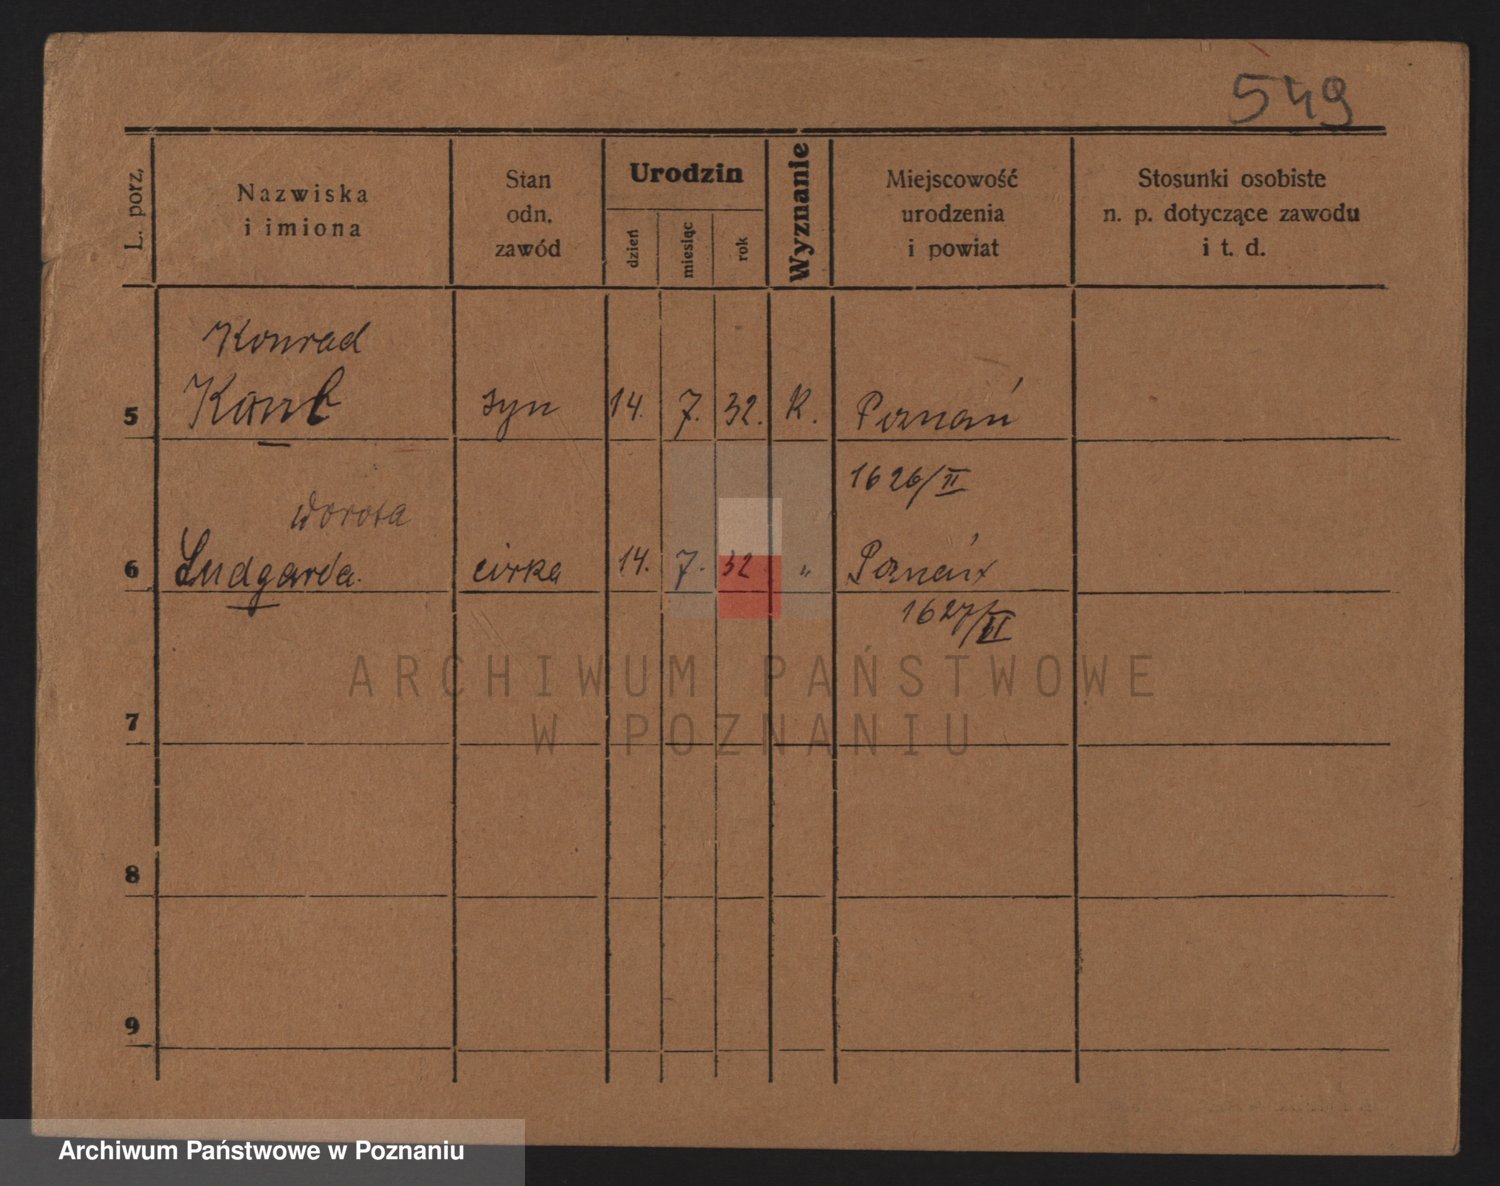 549
L. porz.
Nazwiska
i imiona
Stan
odn.
zawód
Urodzin
dzień
miesiąc
rok
Wyznanie
Miejscowość
urodzenia
i powiat
Stosunki osobiste
n. p. dotyczące zawodu
i t. d.
Konrad
5 syn 14. 7. 32. R. Poznań
1626/II
Dorota
6 Ludgarda. córka 14. 7. 32 " Poznań
1627/II
7
8
9
ARCHIWUM PAŃSTWOWE
W POZNANIU
Archiwum Państwowe w Poznaniu